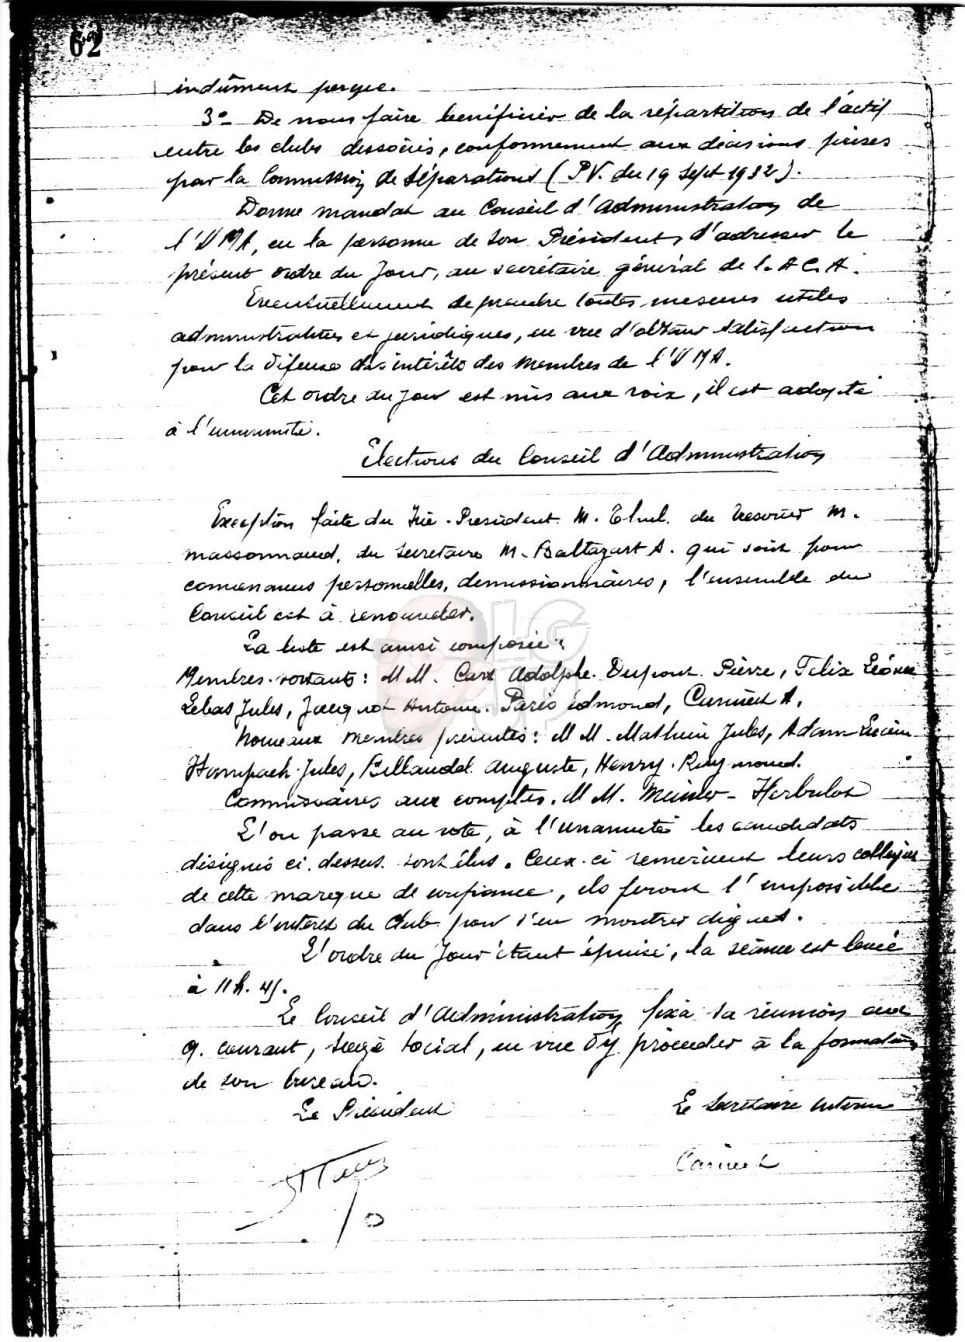 62
indûment perçue.
3º- De nous faire bénéficier de la répartition de l'actif
entre les clubs dissociés, conformément aux décisions prises
par la Commission de Séparations (P.V. du 19 Sept 1932).
Donne mandat au Conseil d'Administration de
l'UMA, en la personne de son Président, d'adresser le
présent ordre du Jour, au secrétaire général de l.A C.A.
Eventuellement de prendre toutes mesures utiles
administratives et juridiques, en vue d'obtenir satisfaction
pour la Défense des intérêts des Membres de l'UMA.
Cet ordre du Jour est mis aux voix, il est adopté
à l'unanimité.
Elections du Conseil d'Administration
Exception faite du Vice-President M. du Trésorier M.
Massonnaud, du Secrétaire M. Baltazart A. qui sont pour
convenances personnelles, démissionnaires, l'ensemble du
Conseil est à renouveler.
La liste est ainsi composée:
Membres sortants: M M. Carx Adolphe. Dupont Pierre, Felix Léonce
Lebas Jules, Jacquot Antoine. Paris Edmond, A.
Nouveaux Membres présentés: M M. Mathieu Jules, Adam Lucien
Hompach Jules, Billaudel Auguste, Henry Raymond.
Commissaires aux comptes. M M. - Herbulot
L'on passe au vote, à l'unanimité les candidats
désignés ci-dessus sont élus. Ceux-ci remercient leurs collègues
de cette marque de confiance, ils feront l'impossible
dans l'intérêt du Club pour s'en montrer dignes.
L'ordre du Jour étant épuisé, la séance est levée
à 11h. 45.
Le Conseil d'Administration fixa sa réunion au
9. courant, siège social, en vue d'y procéder à la formation
de son bureau.
Le Président Le Secrétaire interim